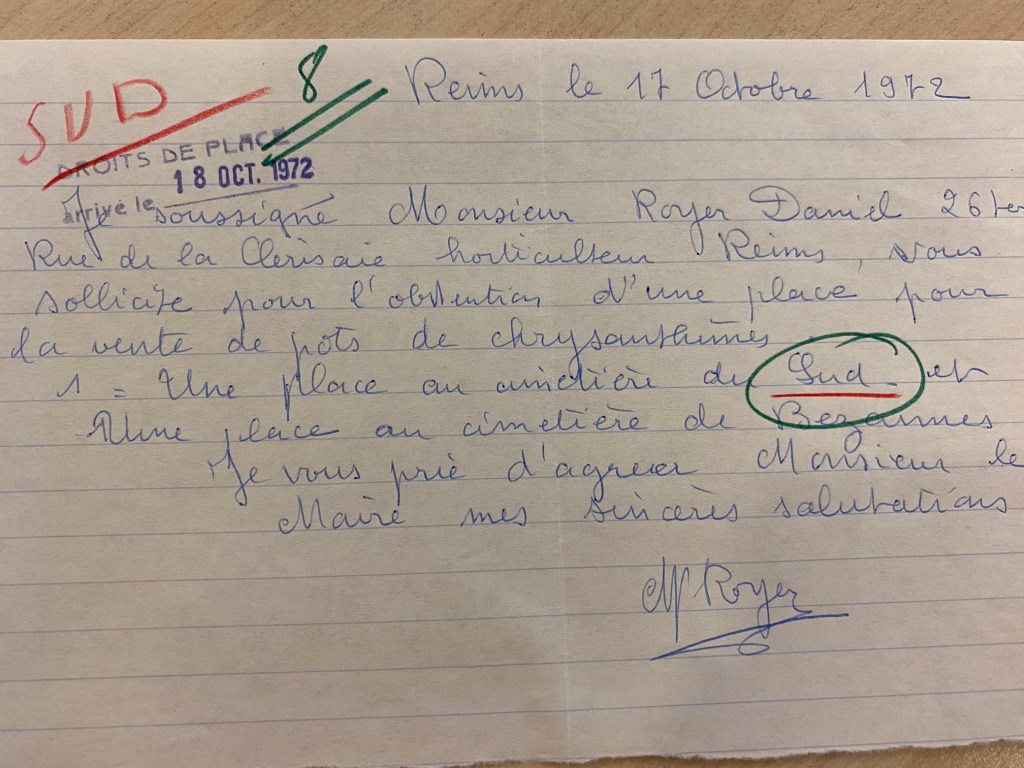 SUD
8
Reims le 17 Octobre 1972
DROITS DE PLACE
18 OCT. 1972
arrivé le
Je soussigné Monsieur Royer Daniel 26 ter
Rue de la Cerisaie horticulteur Reims, vous
sollicite pour l'obtention d'une place pour
la vente de pots de chrysanthèmes
1 = Une place au cimetière du Sud - et
Une place au cimetière de Bezannes
Je vous prie d'agréer Monsieur le
Maire mes sincères salutations
Mr Royer